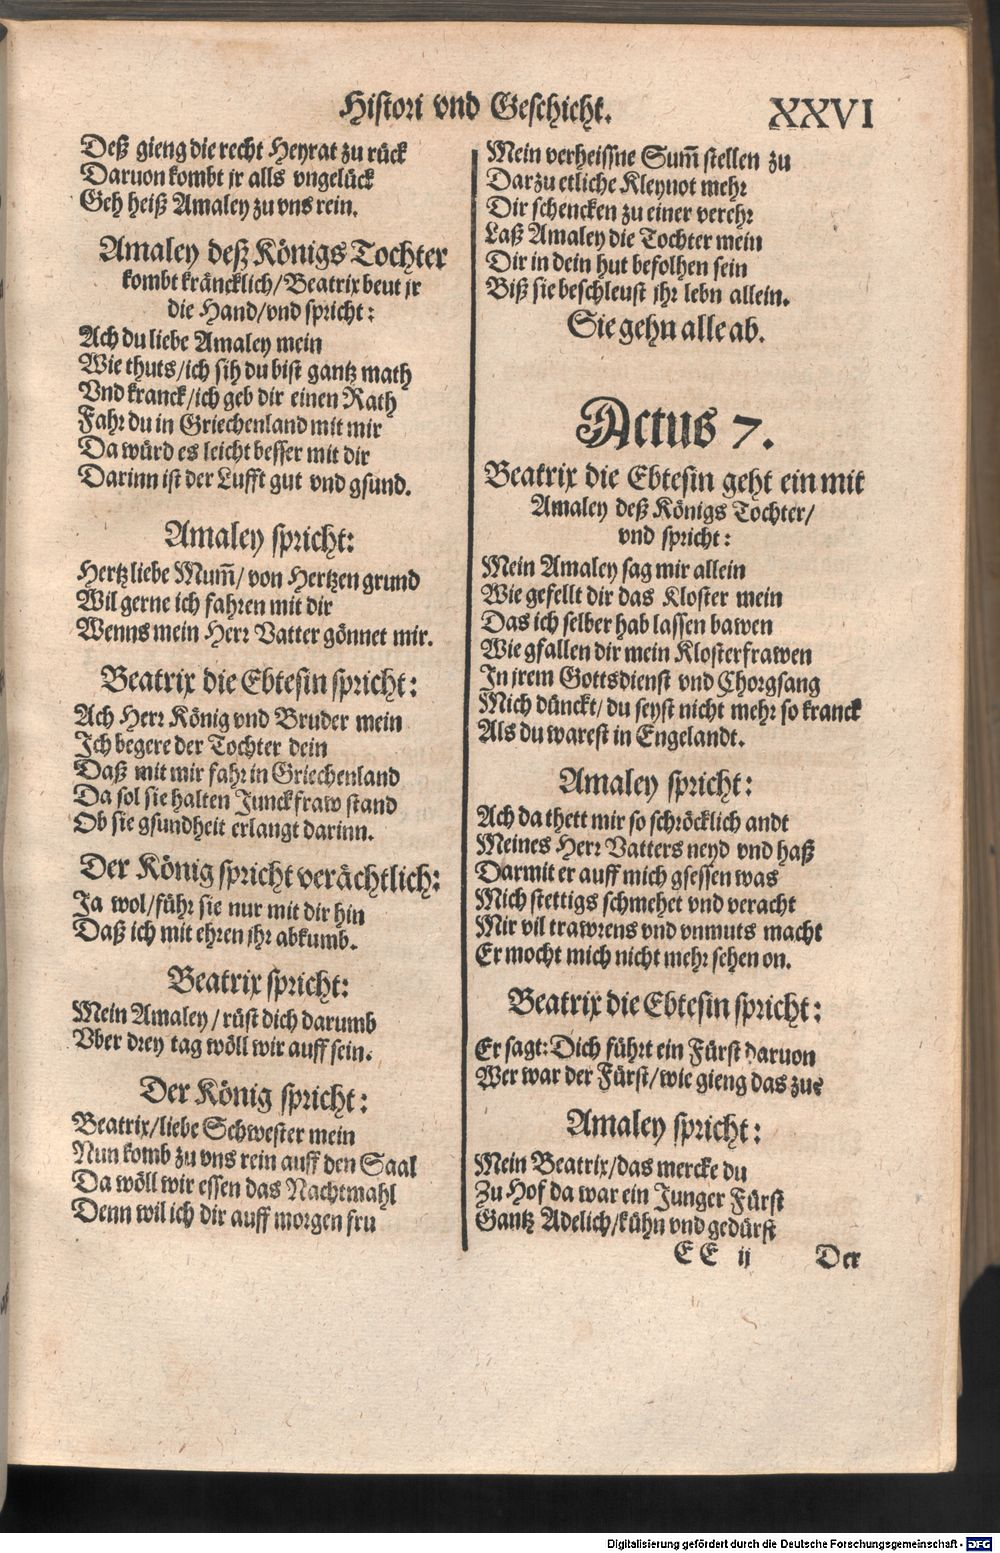 Histori vnd Geschicht.
XXVI
Deß gieng die recht Heyrat zu rück
Daruon kombt jr alls vngelück
Geh heiß Amaley zu vns rein.
Amaley deß Königs Tochter
kombt kräncklich/Beatrix beut jr
die Hand/vnd spricht:
Ach du liebe Amaley mein
Wie thuts/ich sih du bist gantz math
Vnd kranck/ich geb dir einen Rath
Fahr du in Griechenland mit mir
Da würd es leicht besser mit dir
Darinn ist der Lufft gut vnd gsund.
Amaley spricht:
Hertzliebe Mum̃/ von Hertzen grund
Wil gerne ich fahren mit dir
Wenns mein Herr Vatter gönnet mir.
Beatrix die Ebtesin spricht:
Ach Herr König vnd Bruder mein
Ich begere der Tochter dein
Daß mit mir fahr in Griechenland
Da sol sie halten Junckfraw stand
Ob sie gsundheit erlangt darinn.
Der König spricht verächtlich:
Ja wol/führ sie nur mit dir hin
Daß ich mit ehren jhr abkumb.
Beatrix spricht:
Mein Amaley/ rüst dich darumb
Vber drey tag wöll wir auff sein.
Der König spricht:
Beatrix/liebe Schwester mein
Nun komb zu vns rein auff den Saal
Da wöll wir essen das Nachtmahl
Denn wil ich dir auff morgen fru
Mein verheissne Sum̃ stellen zu
Darzu etliche Kleynot mehr
Dir schencken zu einer verehr
Laß Amaley die Tochter mein
Dir in dein hut befolhen sein
Biß sie beschleust jhr lebn allein.
Sie gehn alle ab.
Actus 7.
Beatrix die Ebtesin geht ein mit
Amaley deß Königs Tochter/
vnd spricht:
Mein Amaley sag mir allein
Wie gefellt dir das Kloster mein
Das ich selber hab lassen bawen
Wie gfallen dir mein Klosterfrawen
In jrem Gottsdienst vnd Chorgsang
Mich dünckt/ du seyst nicht mehr so kranck
Als du warest in Engelandt.
Amaley spricht:
Ach da thett mir so schröcklich andt
Meines Herr Vatters neyd vnd haß
Darmit er auff mich gsessen was
Mich stettigs schmehet vnd veracht
Mir vil trawrens vnd vnmuts macht
Er mocht mich nicht mehr sehen on.
Beatrix die Ebtesin spricht:
Er sagt: Dich führt ein Fürst daruon
Wer war der Fürst/wie gieng das zu?
Amaley spricht:
Mein Beatrix/das mercke du
Zu Hof da war ein Junger Fürst
Gantz Adelich/kühn vnd gedürst
EE ij
Der
Digitalisierung gefördert durch die Deutsche Forschungsgemeinschaft - DFG